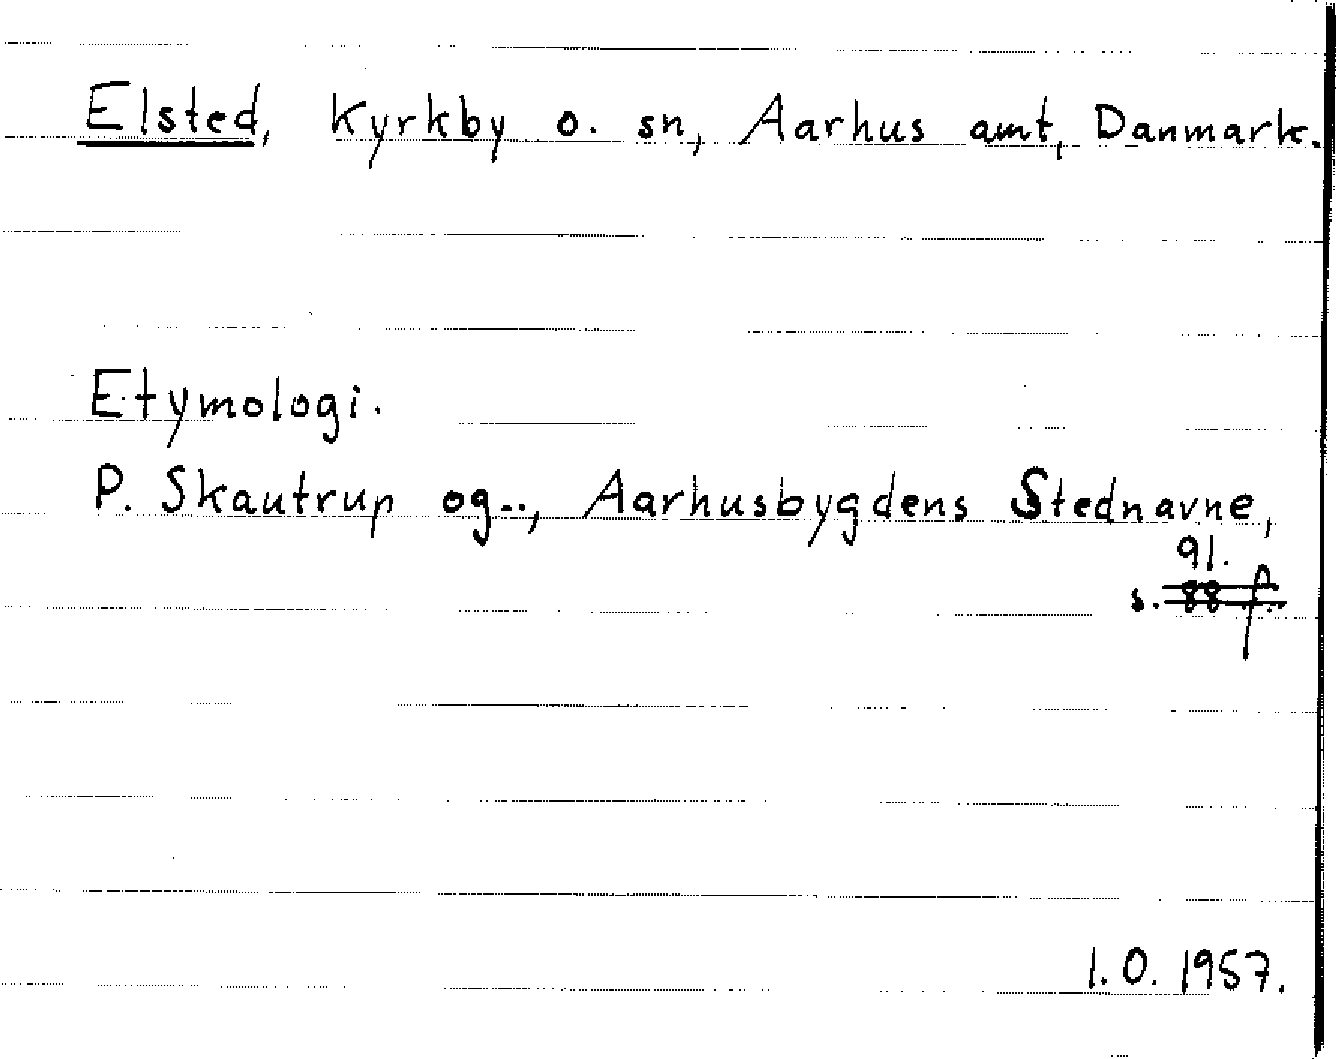 Elsted, Kyrkby o. sn, Aarhus amt, Danmark.
Etymologi.
P. Skautrup og.., Aarhusbygdens Stednavne,
91.
s. 88 f.
I.O. 1957.